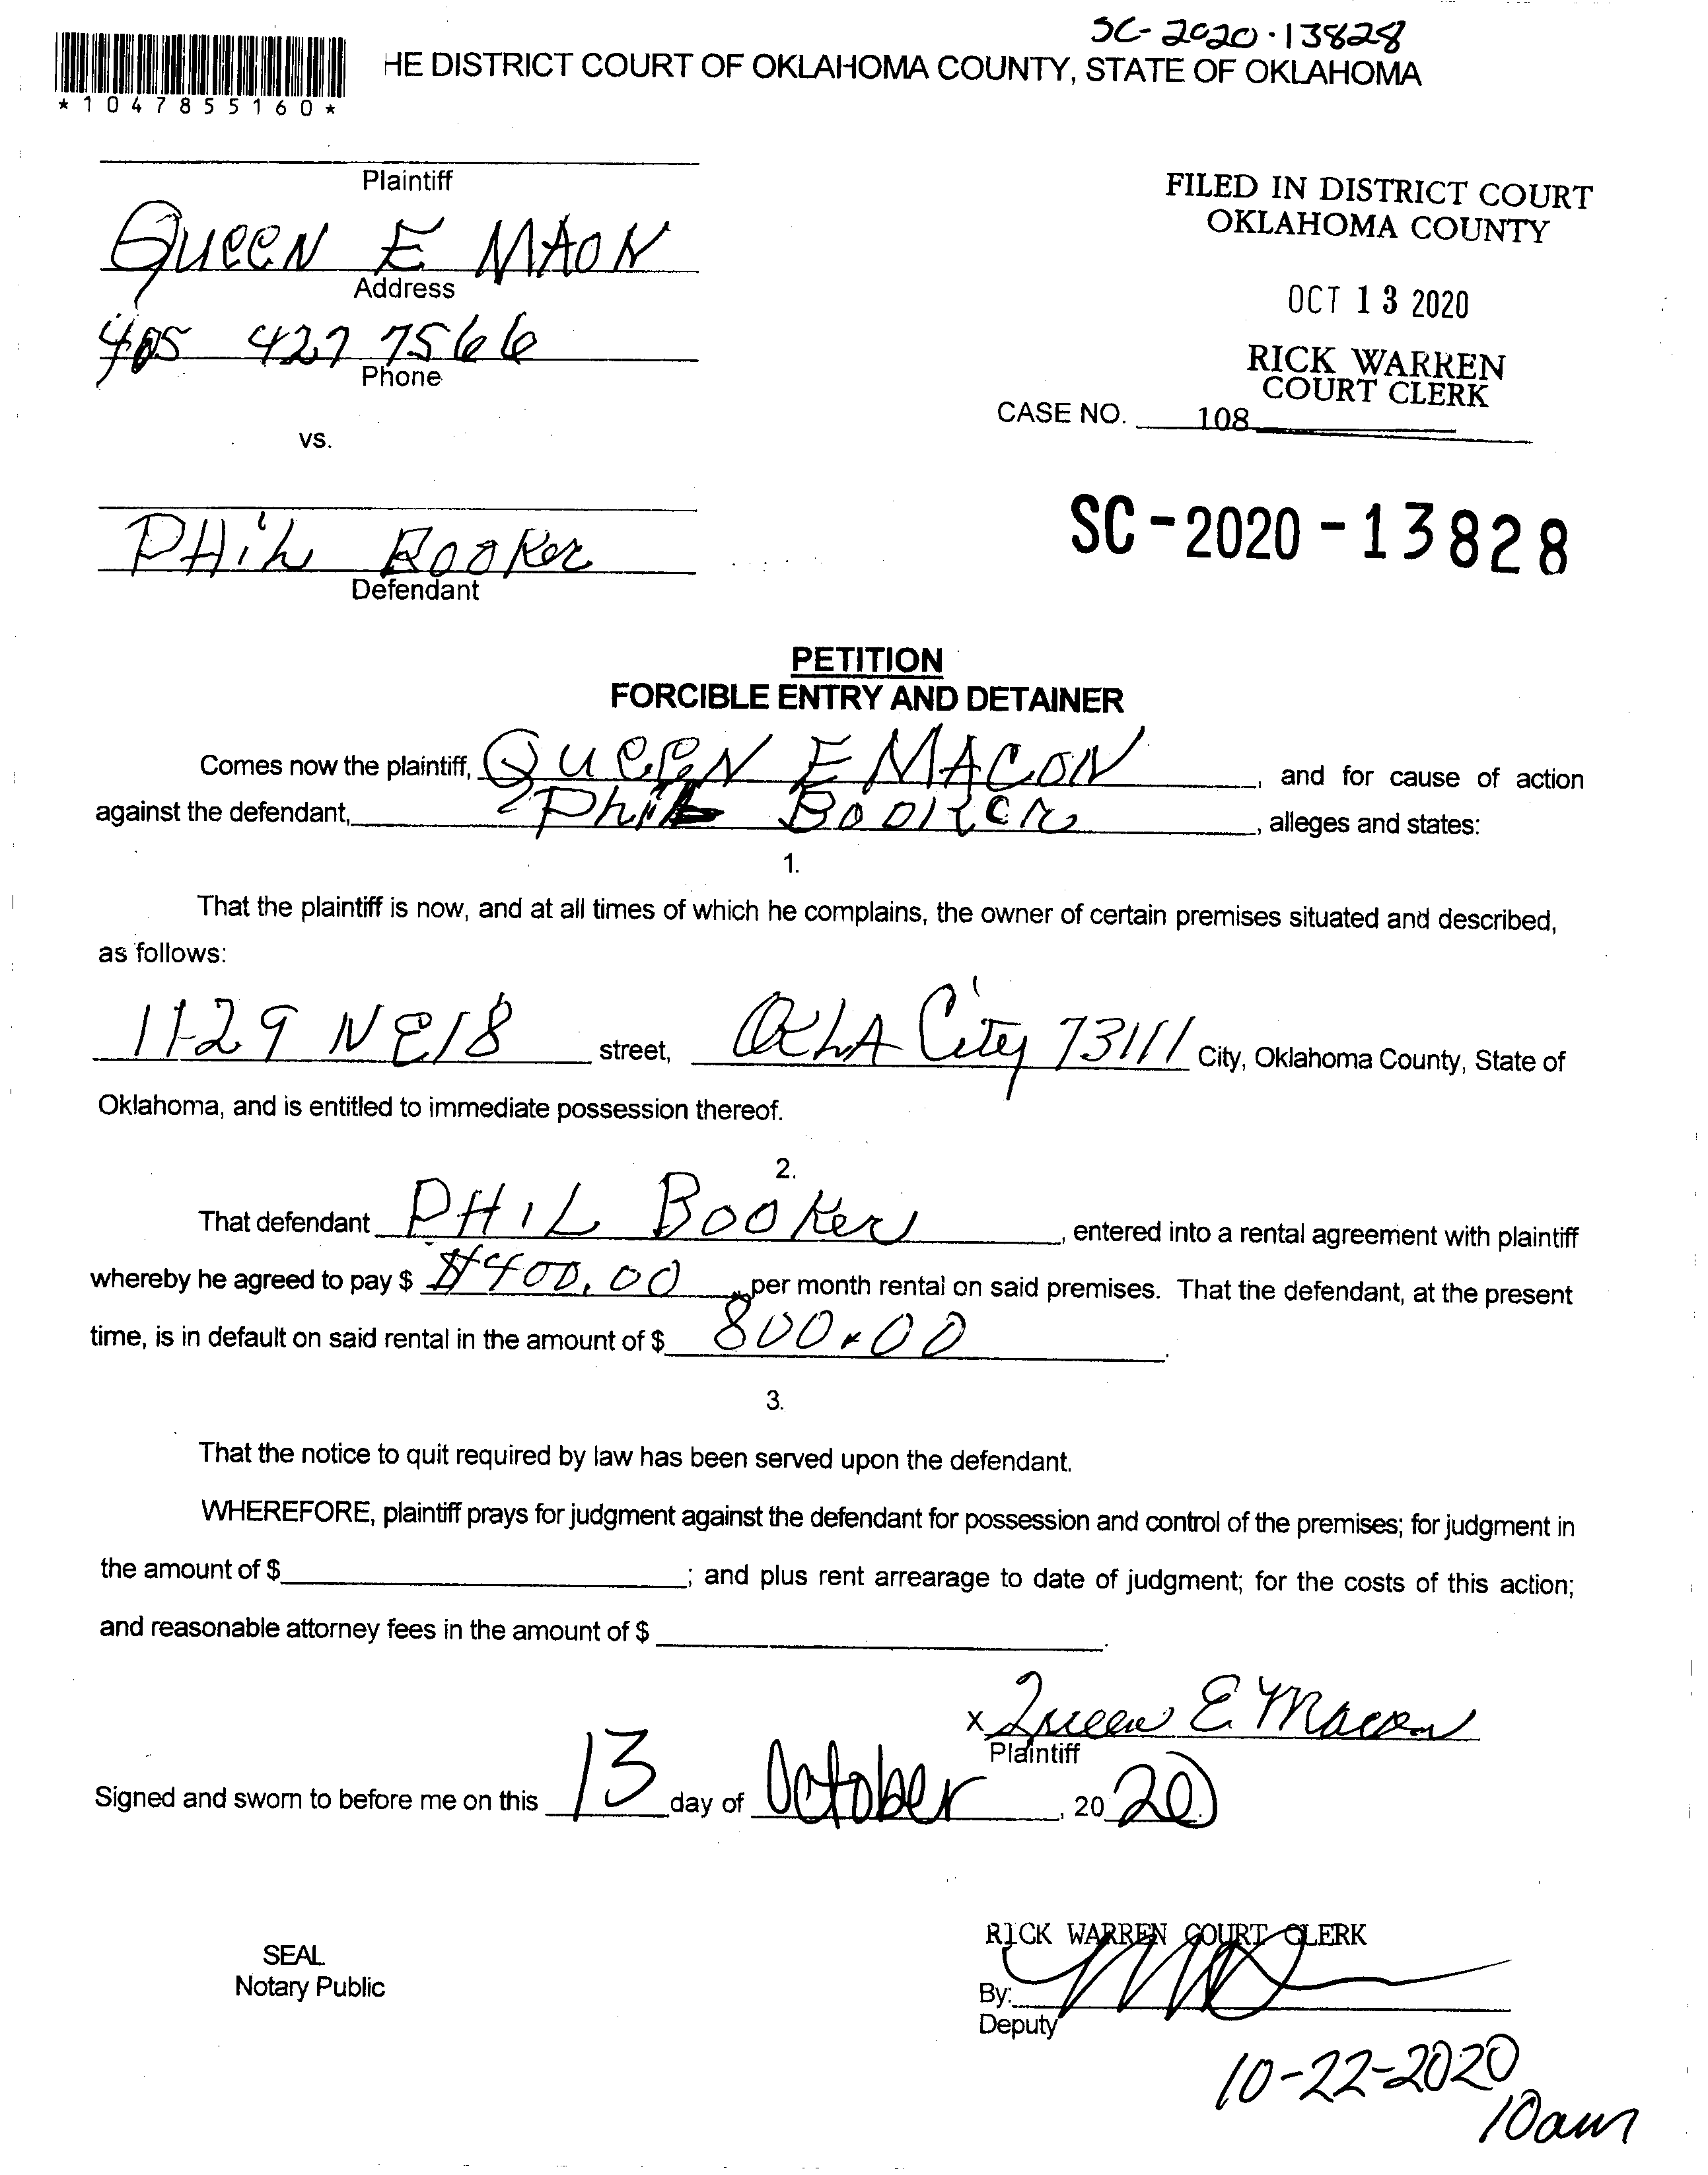 SC-2020-13828
HE DISTRICT COURT OF OKLAHOMA COUNTY, STATE OF OKLAHOMA
*1047855160*
Plaintiff
QUEEN E MAON
Address
405 427 7566
Phone
vs.
PHIL BOOKER
Defendant
FILED IN DISTRICT COURT
OKLAHOMA COUNTY
OCT 13 2020
RICK WARREN
COURT CLERK
CASE NO. 108
SC-2020-13828
PETITION
FORCIBLE ENTRY AND DETAINER
Comes now the plaintiff, QUEEN E MACON, and for cause of action
against the defendant, Phil BOOKER, alleges and states:
1.
That the plaintiff is now, and at all times of which he complains, the owner of certain premises situated and described,
as follows:
1129 NE 18 street, OKLA City 73111 City, Oklahoma County, State of
Oklahoma, and is entitled to immediate possession thereof.
2.
That defendant PHIL BOOKER, entered into a rental agreement with plaintiff
whereby he agreed to pay $ $400.00 per month rental on said premises. That the defendant, at the present
time, is in default on said rental in the amount of $ 800.00.
3.
That the notice to quit required by law has been served upon the defendant.
WHEREFORE, plaintiff prays for judgment against the defendant for possession and control of the premises; for judgment in
the amount of $ ; and plus rent arrearage to date of judgment; for the costs of this action;
and reasonable attorney fees in the amount of $ .
x Queen E Macon
Plaintiff
Signed and sworn to before me on this 13 day of October, 20 20
SEAL
Notary Public
RICK WARREN COURT CLERK
By:
Deputy
10-22-2020
10am